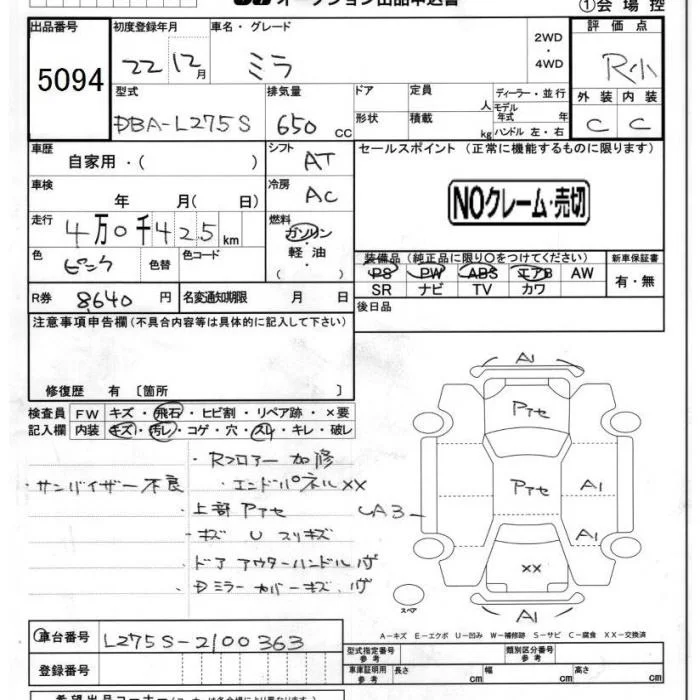 オークション出品申込書
①会場控
出品番号 5094
初度登録年月 22 12月
車名・グレード ミラ
2WD・4WD
評価点 R小
型式 DBA-L275S
排気量 650cc
ドア形状
定員 人
積載 kg
ディーラー・並行
モデル年式 年
ハンドル 左・右
外装 C
内装 C
車歴 自家用・( )
シフト AT
セールスポイント(正常に機能するものに限ります)
NOクレーム・売切
車検 年 月(日)
冷房 AC
走行 4万0千425km
燃料 ガソリン・軽油・( )
色 ピンク 色替
色コード
装備品(純正品に限り○をつけてください)
新車保証書
PS PW ABS エアB AW
SR ナビ TV カワ
有・無
R券 8640円
名変通知期限 月 日
後日品
注意事項申告欄(不具合内容等は具体的に記入して下さい)
修復歴 有〔箇所 〕
検査員記入欄
FW キズ・飛石・ヒビ割・リペア跡・×要
内装 キズ・汚レ・コゲ・穴・スレ・キレ・破レ
・Rフロアー 加修
・サンバイザー不良
・エンドパネルXX
・上部アトセ
・キズ U スリキズ
・ドア アウターハンドル
・Dミラー カバーキズ
A1
アトセ
アトセ
A1
A3
A1
XX
A1
スペア
A-キズ E-エクボ U-凹み W-補修跡 S-サビ C-腐食 XX-交換済
車台番号 L275S-2100363
登録番号
型式指定番号 参考
類別区分番号 参考
車庫証明用 参考 長さ cm 幅 cm 高さ cm
希望出品コーナー